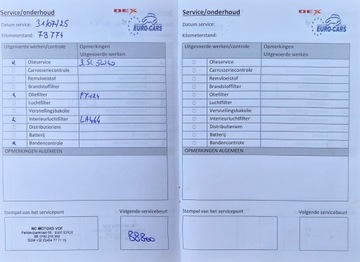 Service/onderhoud
DEX
EURO-CARS
Datum service: 31/07/25
Kilometerstand: 78774
Uitgevoerde werken/controle
Opmerkingen
Uitgevoerde werken
Olieservice
Carrosseriecontrole
Remvloeistof
Brandstoffilter
Oliefilter
Luchtfilter
Versnellingsbakolie
Interieurluchtfilter LA466
Distributieriem
Batterij
Bandencontrole
OPMERKINGEN ALGEMEEN
Stempel van het servicepunt
Volgende servicebeurt
MC MOTORS VOF
88800
Service/onderhoud
DEX
EURO-CARS
Datum service:
Kilometerstand:
Uitgevoerde werken/controle
Opmerkingen
Uitgevoerde werken
Olieservice
Carrosseriecontrole
Remvloeistof
Brandstoffilter
Oliefilter
Luchtfilter
Versnellingsbakolie
Interieurluchtfilter
Distributieriem
Batterij
Bandencontrole
OPMERKINGEN ALGEMEEN
Stempel van het servicepunt
Volgende servicebeurt